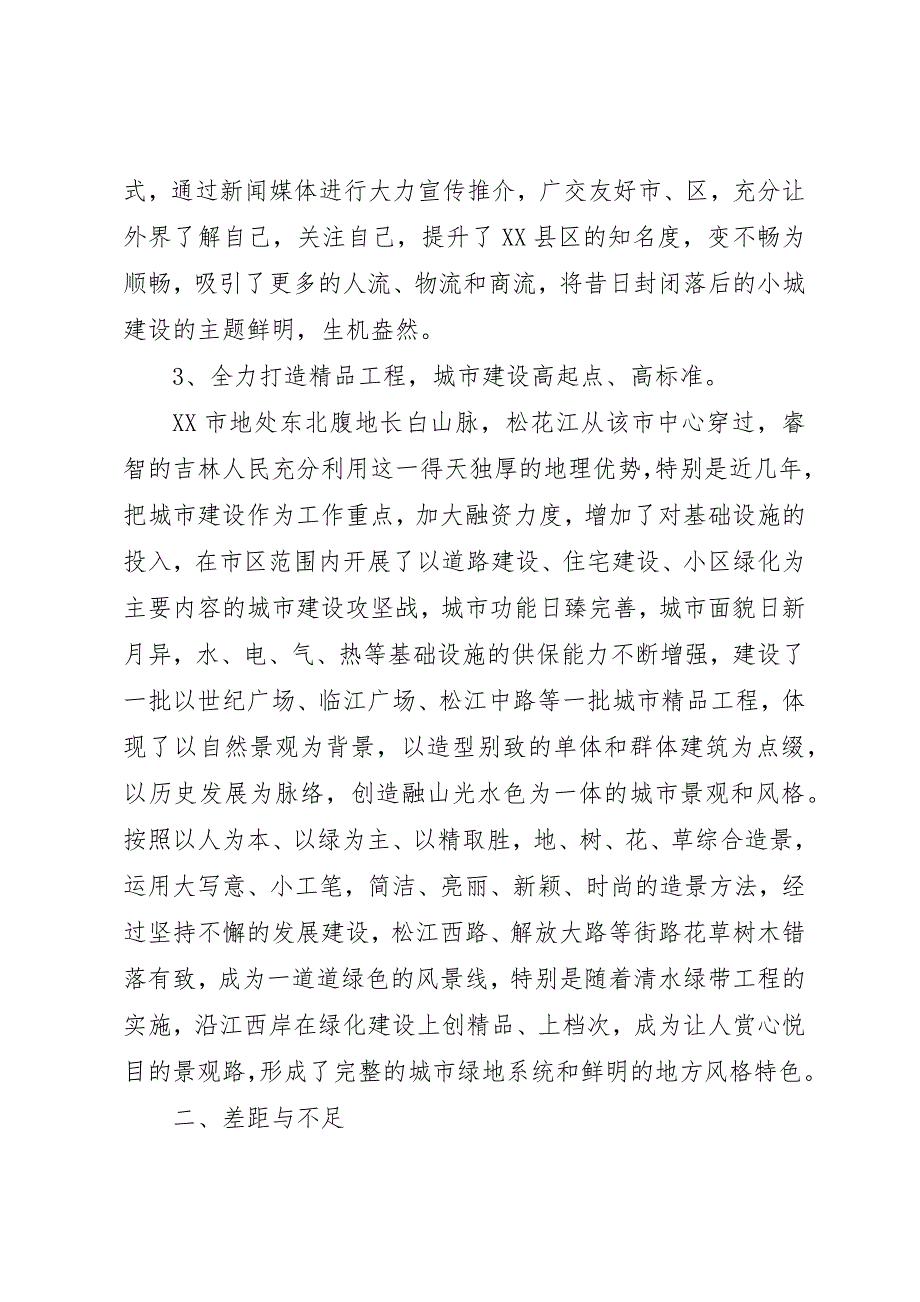 式，通过新闻媒体进行大力宣传推介，广交友好市、区，充分让
外界了解自己，关注自己，提升了 XX 县区的知名度，变不畅为
顺畅，吸引了更多的人流、物流和商流，将昔日封闭落后的小城
建设的主题鲜明，生机盎然。
3、全力打造精品工程，城市建设高起点、高标准。
XX 市地处东北腹地长白山脉，松花江从该市中心穿过，睿
智的吉林人民充分利用这一得天独厚的地理优势，特别是近几年，
把城市建设作为工作重点，加大融资力度，增加了对基础设施的
投入，在市区范围内开展了以道路建设、住宅建设、小区绿化为
主要内容的城市建设攻坚战，城市功能日臻完善，城市面貌日新
月异，水、电、气、热等基础设施的供保能力不断增强，建设了
一批以世纪广场、临江广场、松江中路等一批城市精品工程，体
现了以自然景观为背景，以造型别致的单体和群体建筑为点缀，
以历史发展为脉络，创造融山光水色为一体的城市景观和风格。
按照以人为本、以绿为主、以精取胜，地、树、花、草综合造景，
运用大写意、小工笔，简洁、亮丽、新颖、时尚的造景方法，经
过坚持不懈的发展建设，松江西路、解放大路等街路花草树木错
落有致，成为一道道绿色的风景线，特别是随着清水绿带工程的
实施，沿江西岸在绿化建设上创精品、上档次，成为让人赏心悦
目的景观路，形成了完整的城市绿地系统和鲜明的地方风格特色。
二、差距与不足